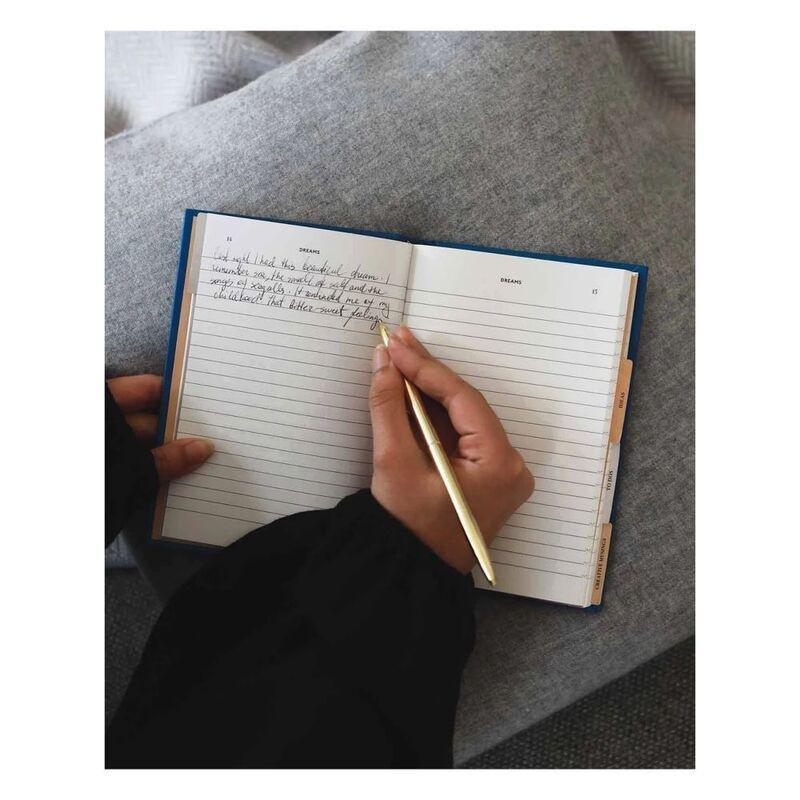 DREAMS
last night I had this beautiful dream. I
remember sea, the smell of salt and the
songs of seagalls. It reminded me of my
childhood that bitter-sweet feeling
DREAMS
15
IDEAS
TO DOS
CREATIVE MUSINGS